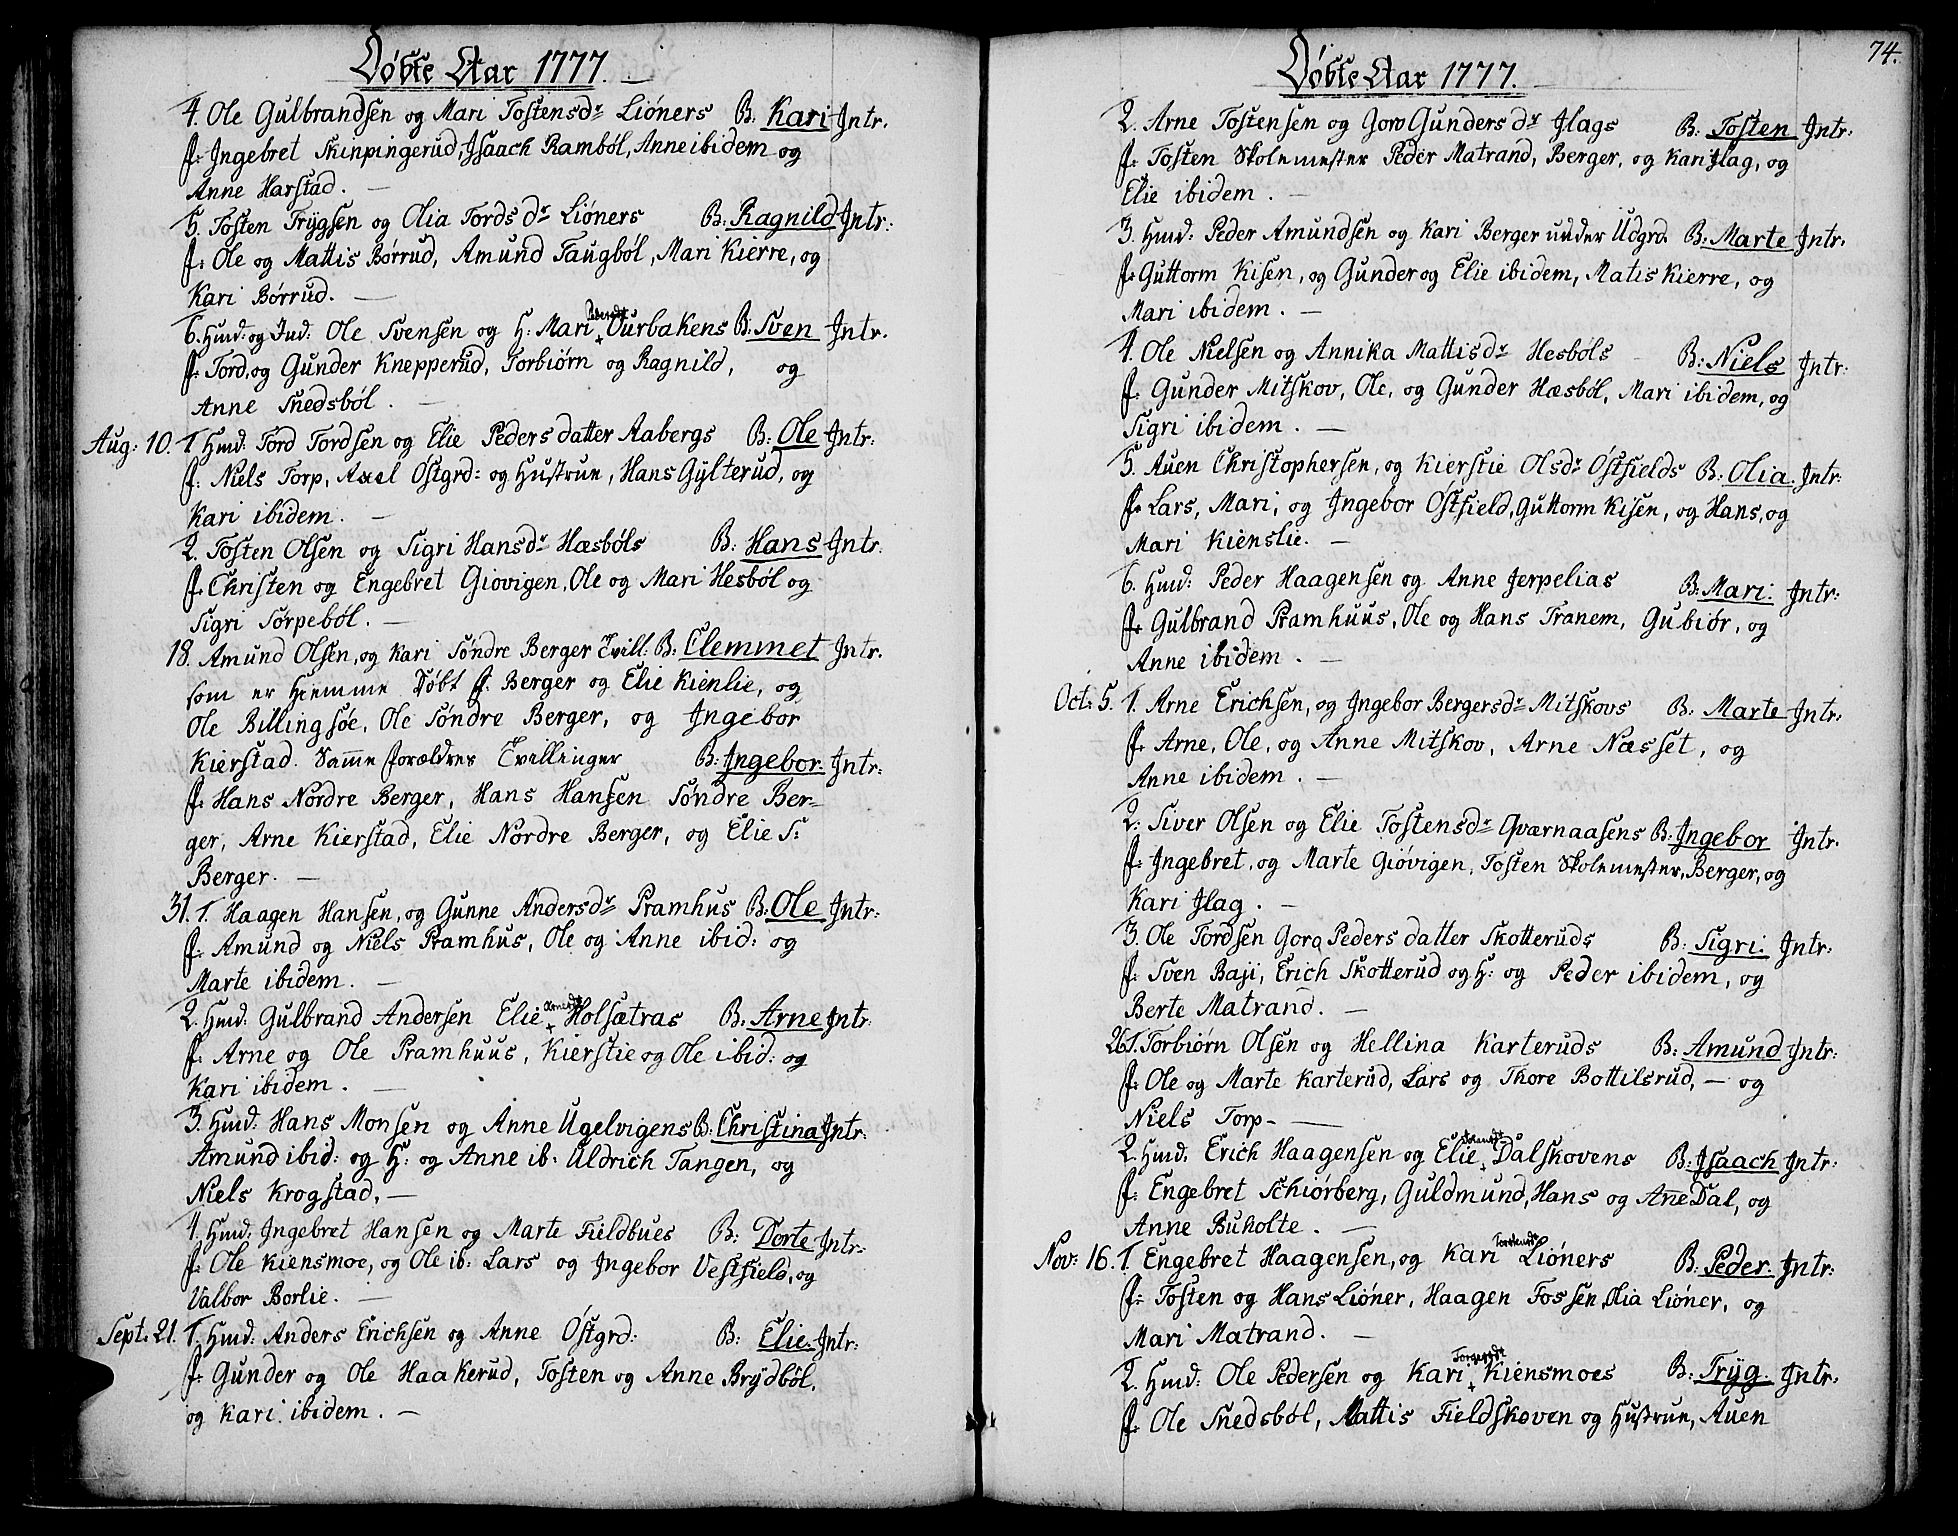 Døbte Aar 1777.
4. Ole Gulbrandsen og Mari Tostensdr Liøners B: Kari Intr.
f: Ingebret Skinpingerud, Isaach Rambøl, Anne ibidem og
Anne Harstad. —
5. Tosten Trygsen og Olia Tordsdr Liøners B: Ragnild Intr:
f: Ole og Mattis Børrud, Amund Taugbøl, Mari Kierre, og
Kari Børrud. —
6. Hmd: og Ind: Ole Svensen og H: Mari Ourbakens B: Sven Intr.
f: Tord, og Gunder Knepperud, Torbiørn og Ragnild, og
Anne Snedsbøl. —
Aug: 10. 1. Hmd: Tord Tordsen og Elie Pedersdatter Aabergs B: Ole Intr:
f: Niels Torp, Axel Østgrd: og Hustrue, Hans Gylterud, og
Kari ibidem. —
2. Tosten Olsen og Sigri Hansdr Hæsbøls B: Hans Intr.
f: Christen og Engebret Giøvigen, Ole og Mari Hesbøl og
Sigri Torpebøl. —
18. Amund Olsen, og Kari Søndre Berger Tvill: B: Clemmet Intr.
som er Hiemme Døbt f: Berger og Elie Kienlie, og
Ole Billingsøe, Ole Søndre Berger, og Ingebor
Kierstad. Samme forældres Tvillinger B: Ingebor. Intr:
f: Hans Nordre Berger, Hans Hansen Søndre Ber=
ger, Arne Kierstad, Elie Nordre Berger, og Elie S:
Berger. —
31. 1. Haagen Hansen, og Gunne Andersdr Pramhus B: Ole Intr:
f: Amund og Niels Pramhus, Ole og Anne ibid: og
Marte ibidem. —
2. Hmd: Gulbrand Andersen Elie Holsætras B. Arne Intr:
f: Arne og Ole Pramhuus, Kierstie og Ole ibid: og
Kari ibidem. —
3. Hmd: Hans Monsen og Anne Ugelvigens B: Christina Intr:
Amund ibid: og H: og Anne ib: Uldrich Tangen, og
Niels Krogstad. —
4. Hmd: Ingebret Hansen og Marte Fieldbues B: Dorte Intr:
f: Ole Kiensmoe, og Ole ib: Lars og Ingebor Vestfield, og
Valbor Borlie. —
Sept: 21. 1. Hmd: Anders Erichsen og Anne Østgrd: B: Elie. Intr:
f: Gunder og Ole Haakerud, Tosten og Anne Brydbøl.
og Kari ibidem. —
74.
Døbte Aar 1777.
2. Arne Tostensen og Goro Gundersdr Ilags B: Tosten Intr:
f: Tosten Skolemester Peder Matrand, Berger, og Kari Ilag, og
Elie ibidem. —
3. Hmd: Peder Amundsen og Kari Berger under Udgrd. B: Marte Intr.
f: Guttorm Kisen, og Gunder og Elie ibidem, Matis Kierre, og
Mari ibidem. —
4. Ole Nielsen og Annika Mattisdr Hesbøls B: Niels Intr:
f: Gunder Mitskov, Ole, og Gunder Hæsbøl, Mari ibidem, og
Sigri ibidem. —
5. Auen Christophersen, og Kierstie Olsdr Østfields B: Olia. Intr:
f: Lars, Mari, og Ingebor Østfield, Guttorm Kisen, og Hans, og
Mari Kienslie. —
6. Hmd: Peder Haagensen og Anne Jerpelias B: Mari: Intr:
f: Gulbrand Pramhuus, Ole og Hans Tranem, Gubiør, og
Anne ibidem. —
Oct: 5. 1. Arne Erichsen, og Ingebor Bergersdr Mitskovs B: Marte Intr:
f: Arne, Ole, og Anne Mitskov, Arne Næsset, og
Anne ibidem. —
2. Siver Olsen og Elie Tostensdr Qværnaasens B: Ingebor Intr.
f: Ingebret, og Marte Giøvigen, Tosten Skolemester, Berger, og
Kari Ilag. —
3. Ole Tordsen Gora Pedersdatter Skotteruds B: Sigri: Intr:
f: Sven Baji, Erich Skotterud og H: og Peder ibidem, og
Berte Matrand. —
26. 1. Torbiørn Olsen og Hellina Karteruds B: Amund Intr:
f: Ole og Marte Karterud, Lars og Thore Bottilsrud, — og
Niels Torp. —
2. Hmd: Erich Haagensen og Elie Dalskovens B: Isaach Intr:
f: Engebret Schiørberg, Guldmund, Hans og Ane Dal, og
Anne Buholte. —
Nov: 16. 1. Engebret Haagensen, og Kari Liøners B: Peder. Intr:
f: Tosten og Hans Liøner, Haagen Fossen, Olia Liøner, og
Mari Matrand. —
2. Hmd: Ole Pedersen og Kari Kiensmoes B: Tryg. Intr:
f: Ole Snedsbøl, Mattis Fieldskoven og Hustrue, Auen